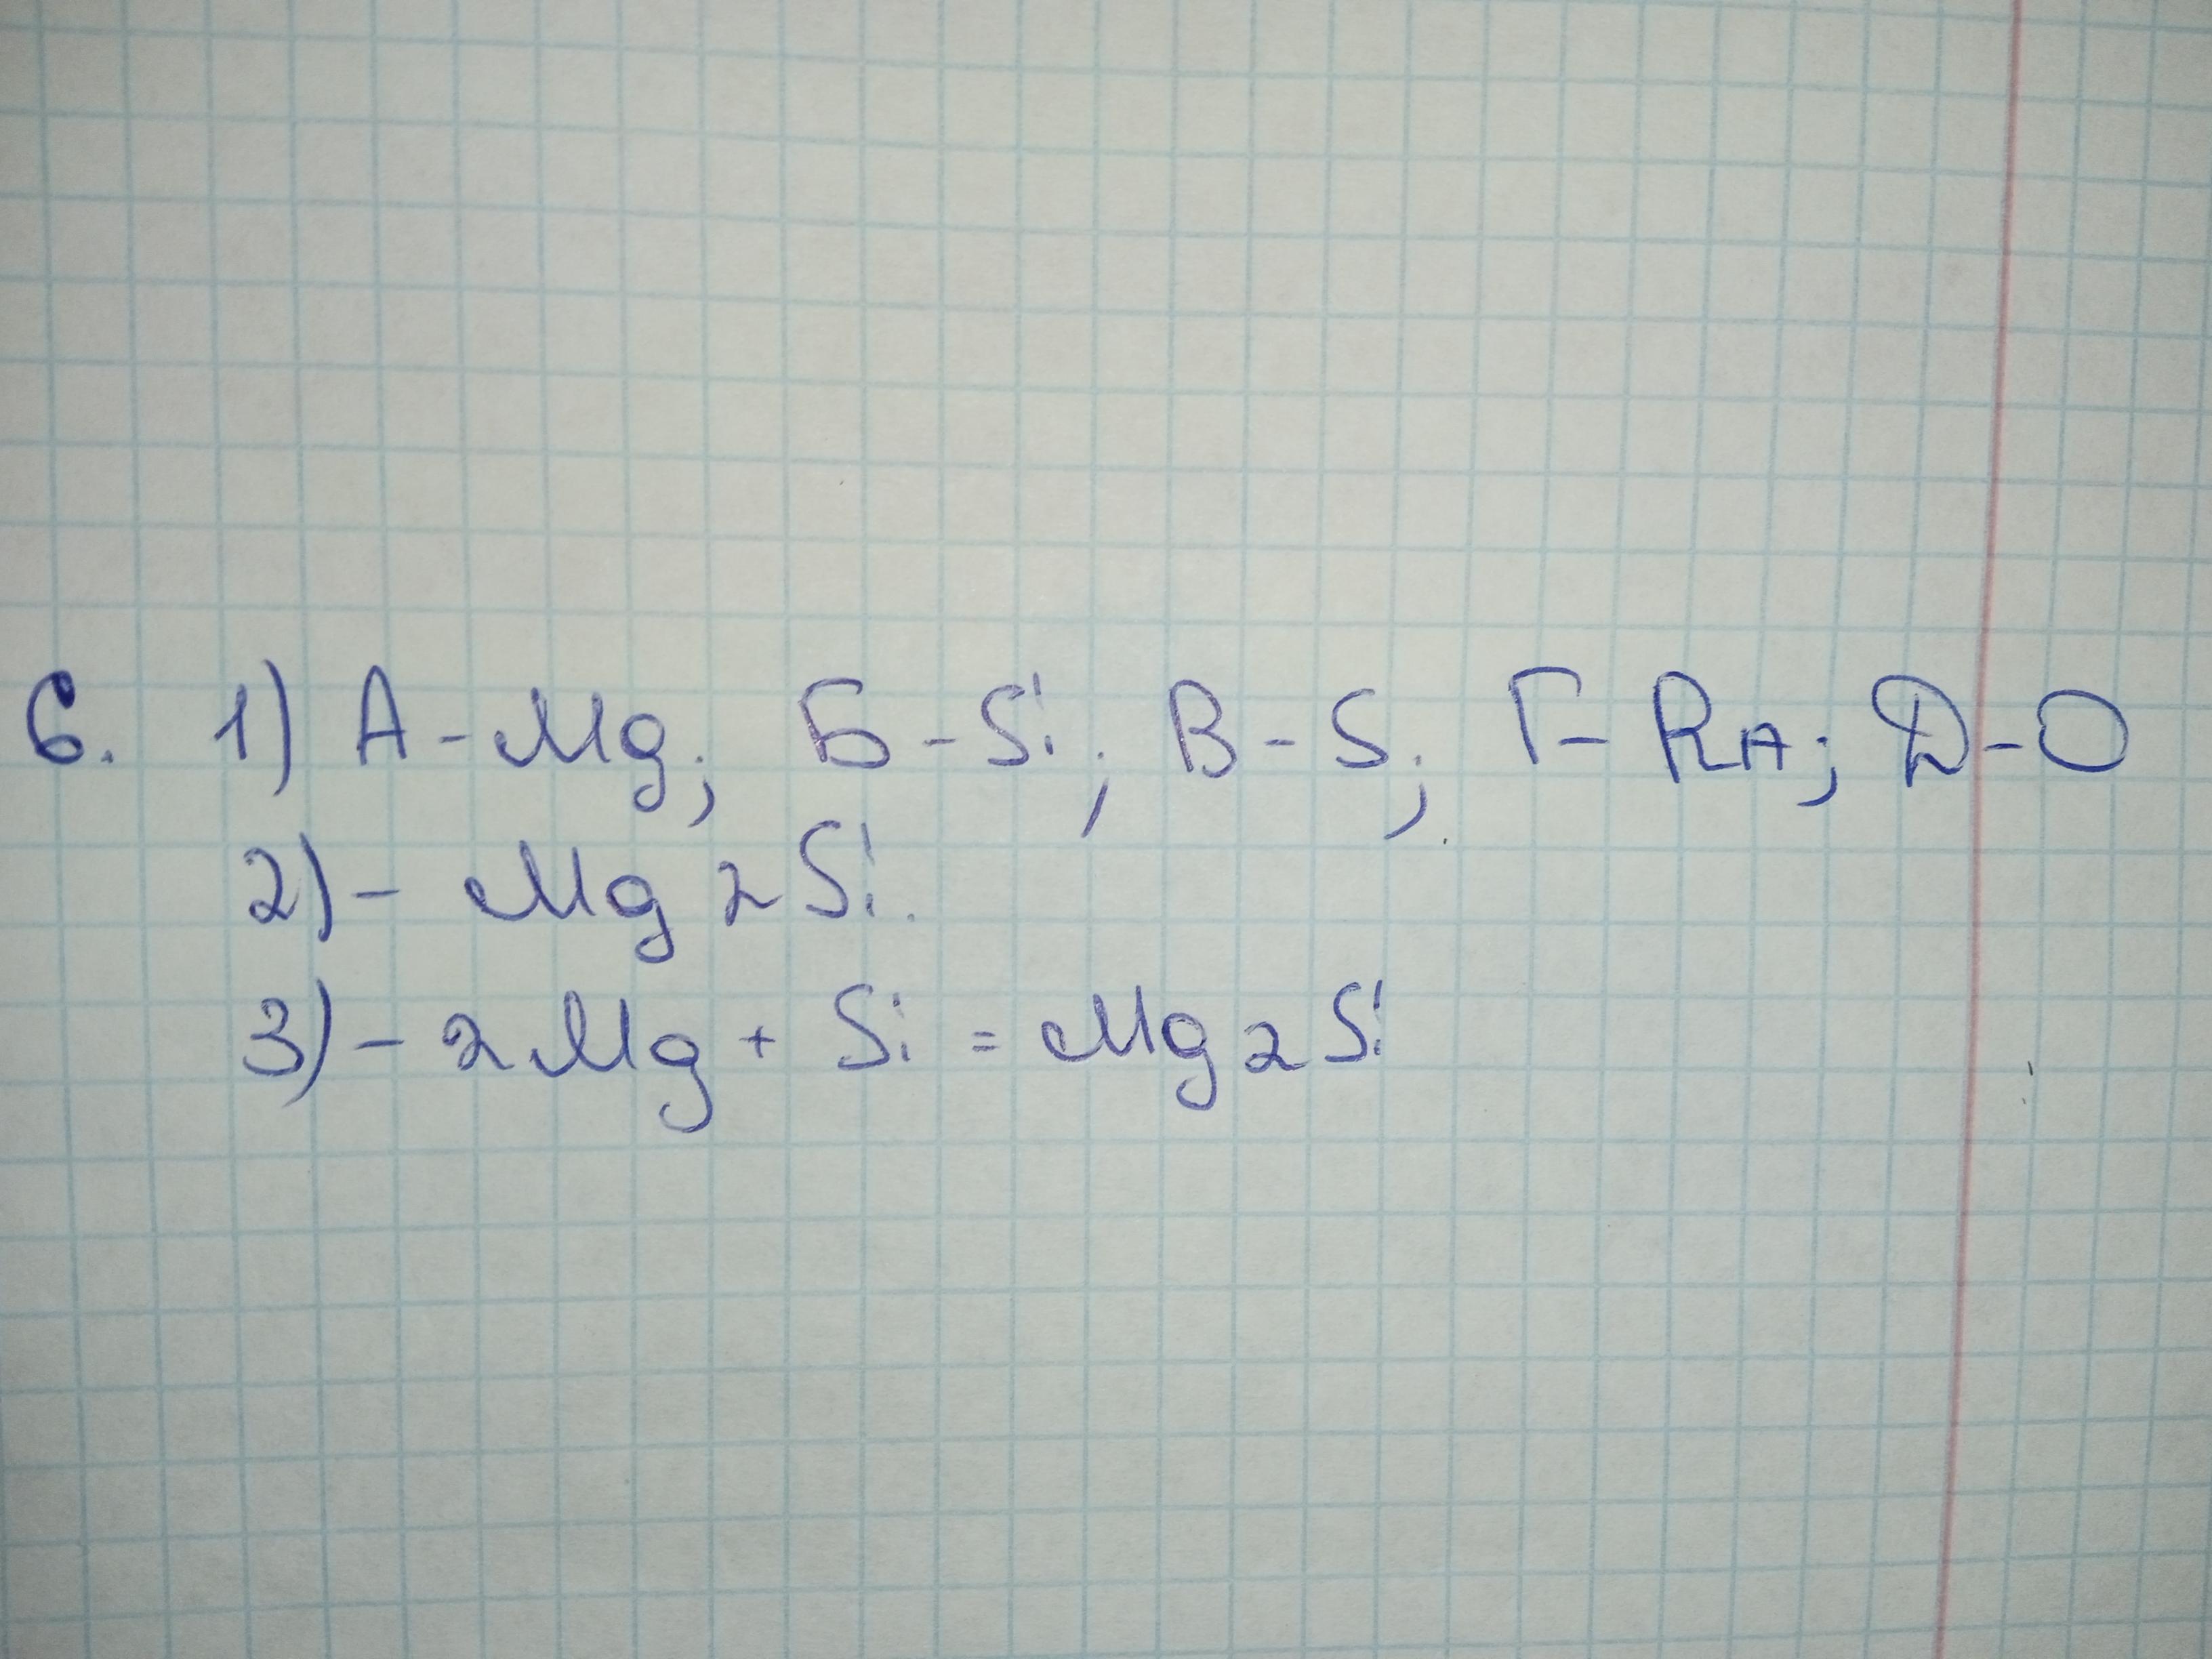 6. 1) А - Mg; Б - Si; В - S; Г - RA; Д - O
2) - Mg 2 Si.
3) - 2 Mg + Si = Mg 2 Si